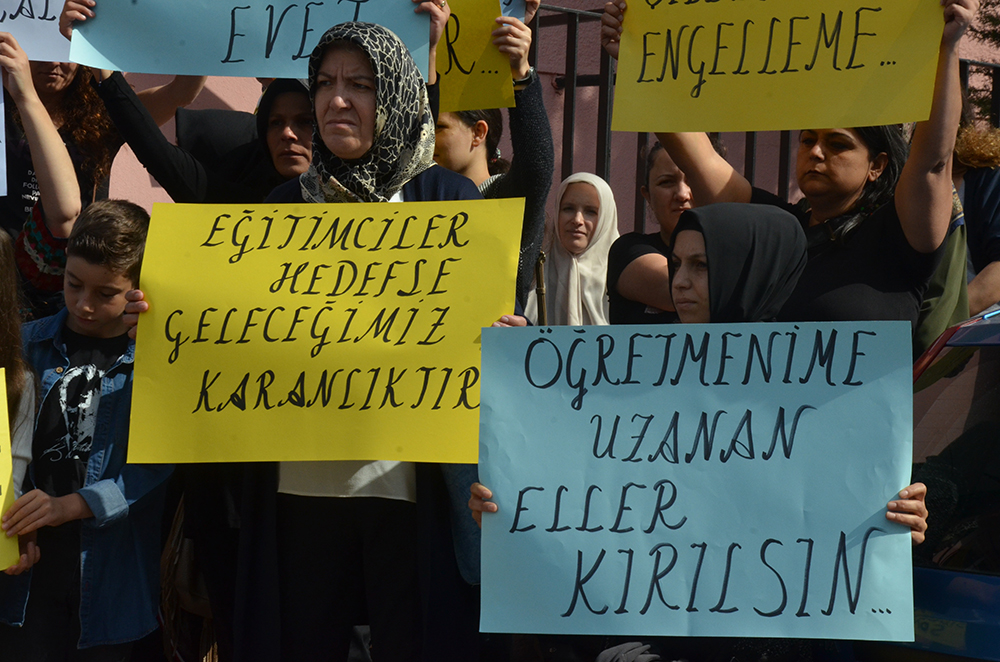 EVET
R...
ENGELLEME...
EĞİTİMCİLER
HEDEFSE
GELECEĞİMİZ
KARANLIKTIR
ÖĞRETMENİME
UZANAN
ELLER
KIRILSIN...